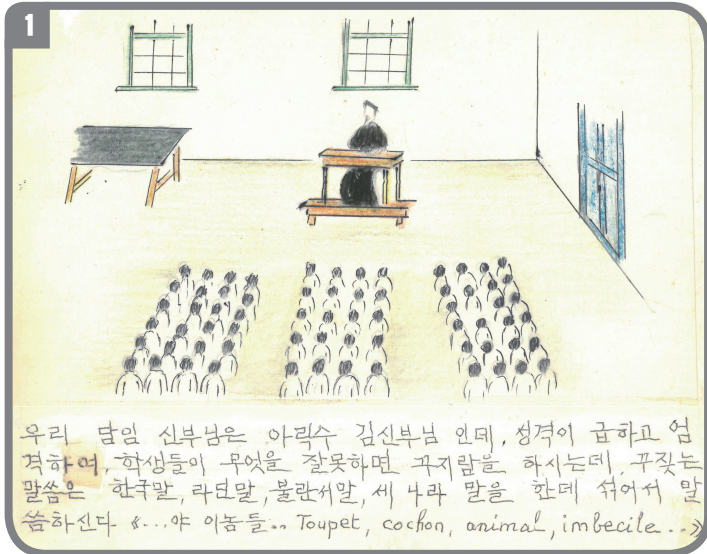 1
우리 담임 신부님은 아릭수 김신부님 인데, 성격이 급하고 엄
격하며, 학생들이 무엇을 잘못하면 꾸지람을 하시는데, 꾸짖는
말씀은 한국말, 라띤말, 불란서말, 세 나라 말을 한데 섞어서 말
씀하신다 《...야 이놈들.. Toupet, cochon, animal, imbecile...》